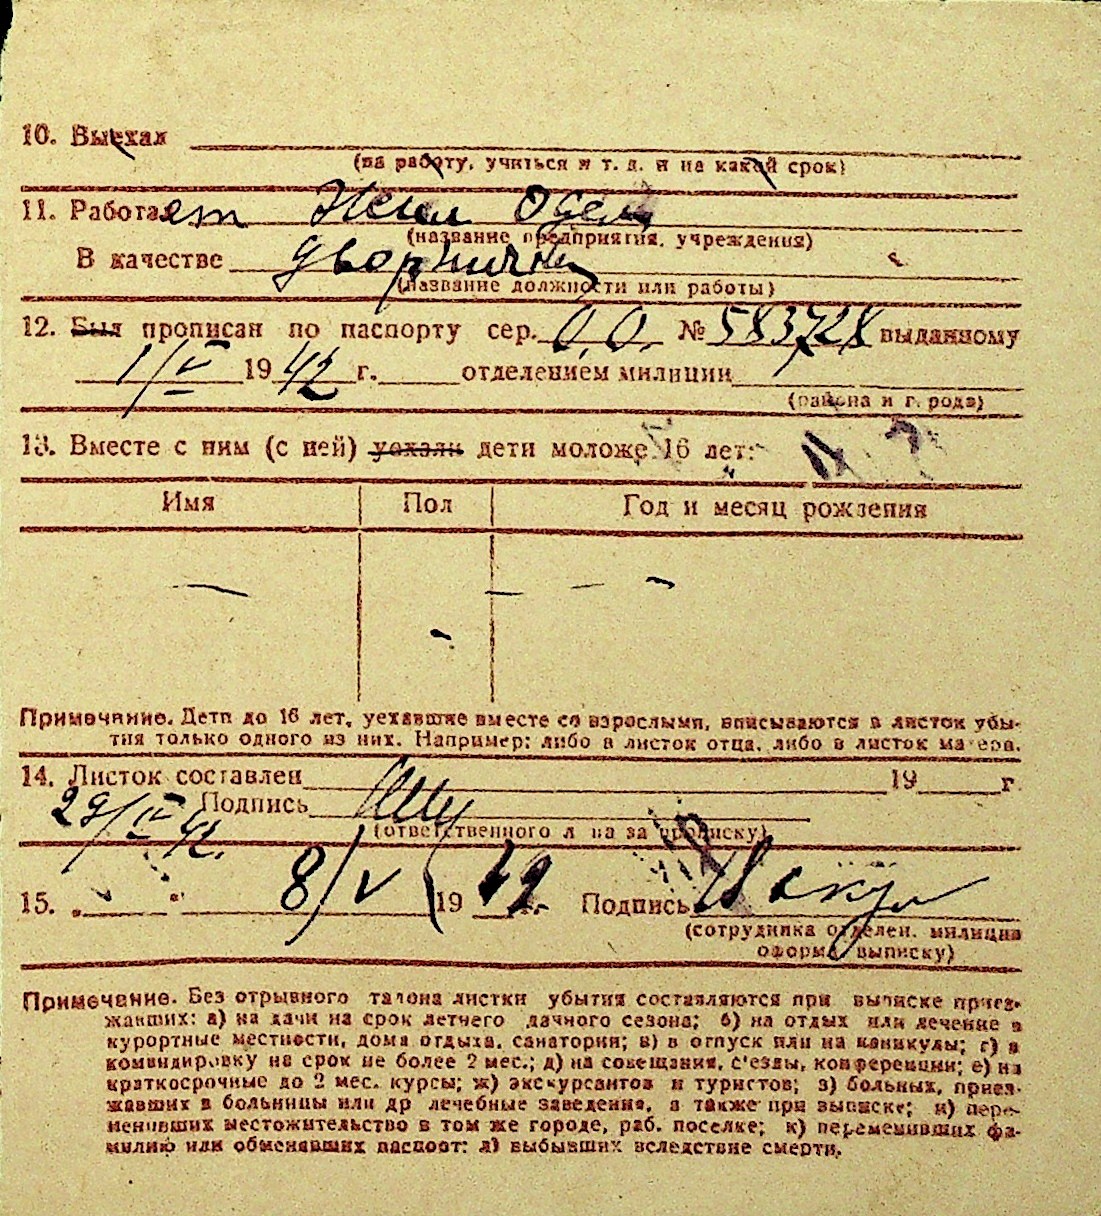 10. Выехал
(на работу, учиться и т. д. и на какой срок)
11. Работает Жил отдел
(название предприятия, учреждения)
В качестве дворничи
(название должности или работы)
12. Был прописан по паспорту сер. О.О. № 583728 выданному
1/V 1942 г. отделением милиции
(района и города)
13. Вместе с ним (с ней) уехали дети моложе 16 лет:
Имя Пол Год и месяц рождения
— — — —
Примечание. Дети до 16 лет, уехавшие вместе со взрослыми, вписываются в листок убы-
тия только одного из них. Например: либо в листок отца, либо в листок матери.
14. Листок составлен 19 г.
29/IV 42. Подпись
(ответственного лица за прописку)
15. „ " 8/V 1942 г. Подпись
(сотрудника отделен. милиции
оформ. выписку)
Примечание. Без отрывного талона листки убытия составляются при выписке приез-
жавших: а) на дачи на срок летнего дачного сезона; б) на отдых или лечение в
курортные местности, дома отдыха, санатории; в) в отпуск или на каникулы; г) в
командировку на срок не более 2 мес.; д) на совещания, с'езды, конференции; е) на
краткосрочные до 2 мес. курсы; ж) экскурсантов и туристов; з) больных, приез-
жавших в больницы или др лечебные заведения, а также при выписке; и) пере-
менивших местожительство в том же городе, раб. поселке; к) переменивших фа-
милию или обменявших паспорт; л) выбывших вследствие смерти.